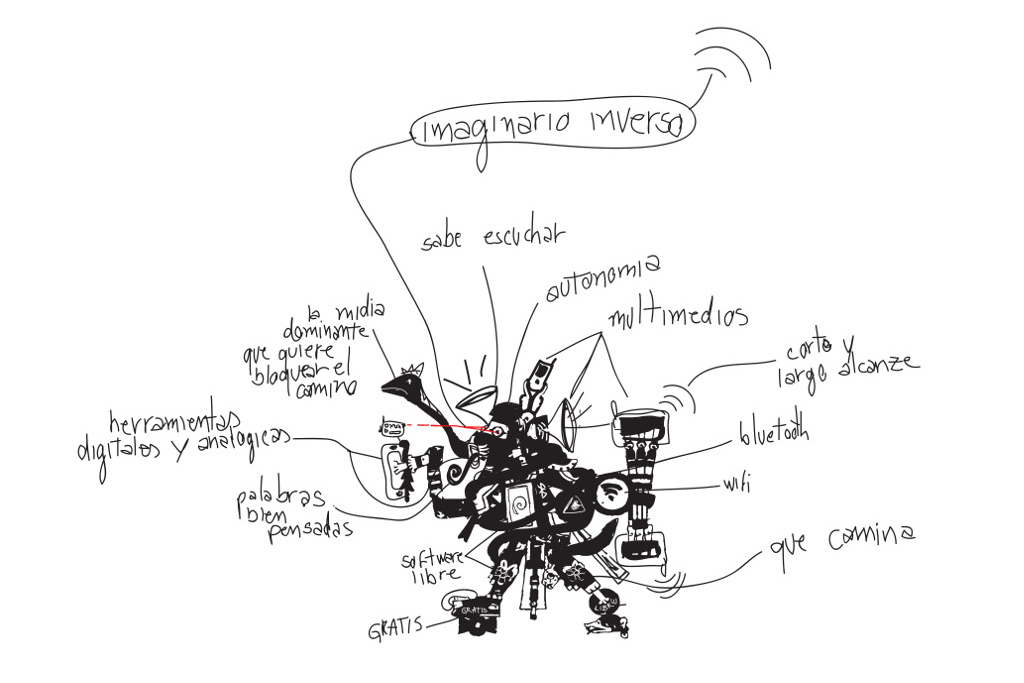 imaginario inverso
sabe escuchar
autonomia
multimedios
la midia
dominante
que quiere
bloquear el
camino
corto y
largo alcanze
herramientas
digitales y analogicas
bluetooth
wifi
palabras
bien
pensadas
software
libre
que camina
GRATIS
GRATIS
LIBRE